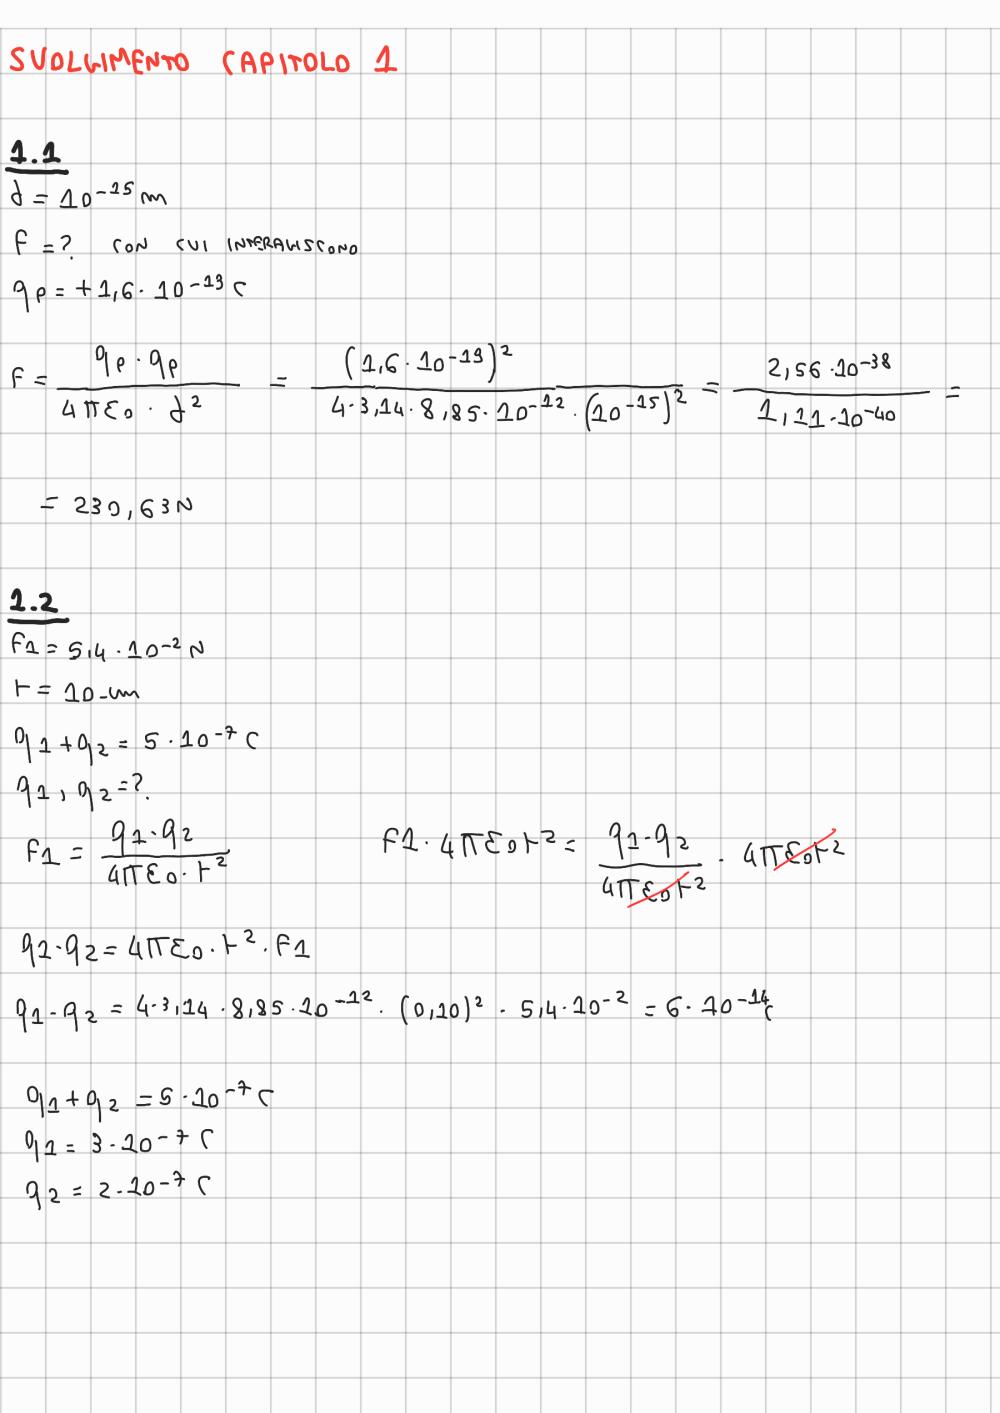 SVOLGIMENTO CAPITOLO 1
1.1
d = 10⁻¹⁵ m
F = ? CON CUI INTERAGISCONO
qp = +1,6 · 10⁻¹⁹ C
F = (qp · qp) / (4πε₀ · d²) = (1,6 · 10⁻¹⁹)² / (4 · 3,14 · 8,85 · 10⁻¹² · (10⁻¹⁵)²) = (2,56 · 10⁻³⁸) / (1,11 · 10⁻⁴⁰) =
= 230,63 N
1.2
F1 = 5,4 · 10⁻² N
r = 10 cm
q1 + q2 = 5 · 10⁻⁷ C
q1, q2 = ?
F1 = (q1 · q2) / (4πε₀ · r²) F1 · 4πε₀r² = (q1 · q2) / (4πε₀r²) · 4πε₀r²
q1 · q2 = 4πε₀ · r² · F1
q1 · q2 = 4 · 3,14 · 8,85 · 10⁻¹² · (0,10)² · 5,4 · 10⁻² = 6 · 10⁻¹⁴ C
q1 + q2 = 5 · 10⁻⁷ C
q1 = 3 · 10⁻⁷ C
q2 = 2 · 10⁻⁷ C